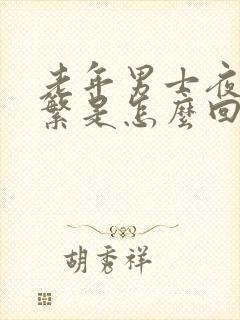 老年男士夜
繁是怎麼回
胡秀祥